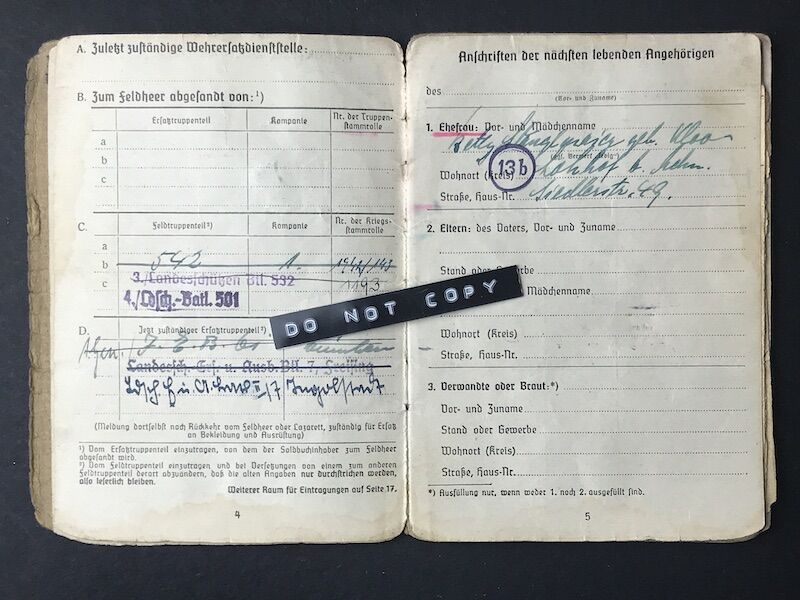 A. Zuletzt zuständige Wehrersatzdienststelle:
B. Zum Feldheer abgesandt von:¹)
Ersatztruppenteil Kompanie Nr. der Truppen-
stammrolle
a
b
c
C. Feldtruppenteil²) Kompanie Nr. der Kriegs-
stammrolle
a
b 542 1.
c 3./Landesschützen Btl. 193
4./Ldsch.-Batl. 501
D. Jetzt zuständiger Ersatztruppenteil²)
Landesch.-Ers. u. Ausb. Btl. 7, Freising
Ldsch. E. u. A. II/7 Ingolstadt
(Meldung dortselbst nach Rückkehr vom Feldheer oder Lazarett, zuständig für Ersatz
an Bekleidung und Ausrüstung)
¹) Vom Ersatztruppenteil einzutragen, von dem der Soldbuchinhaber zum Feldheer
abgesandt wird.
²) Vom Feldtruppenteil einzutragen und bei Versetzungen von einem zum anderen
Feldtruppenteil derart abzuändern, daß die alten Angaben nur durchstrichen werden,
also leserlich bleiben.
Weiterer Raum für Eintragungen auf Seite 17.
4
DO NOT COPY
Anschriften der nächsten lebenden Angehörigen
des
(Vor- und Zuname)
1. Ehefrau: Vor- und Mädchenname
Betty geb.
Wohnort (Kreis) 13b Lohhof b. Mchn.
Straße, Haus-Nr. Siedlerstr. 49.
2. Eltern: des Vaters, Vor- und Zuname
Stand oder Gewerbe
Mädchenname
Wohnort (Kreis)
Straße, Haus-Nr.
3. Verwandte oder Braut:*)
Vor- und Zuname
Stand oder Gewerbe
Wohnort (Kreis)
Straße, Haus-Nr.
*) Ausfüllung nur, wenn weder 1. noch 2. ausgefüllt sind.
5